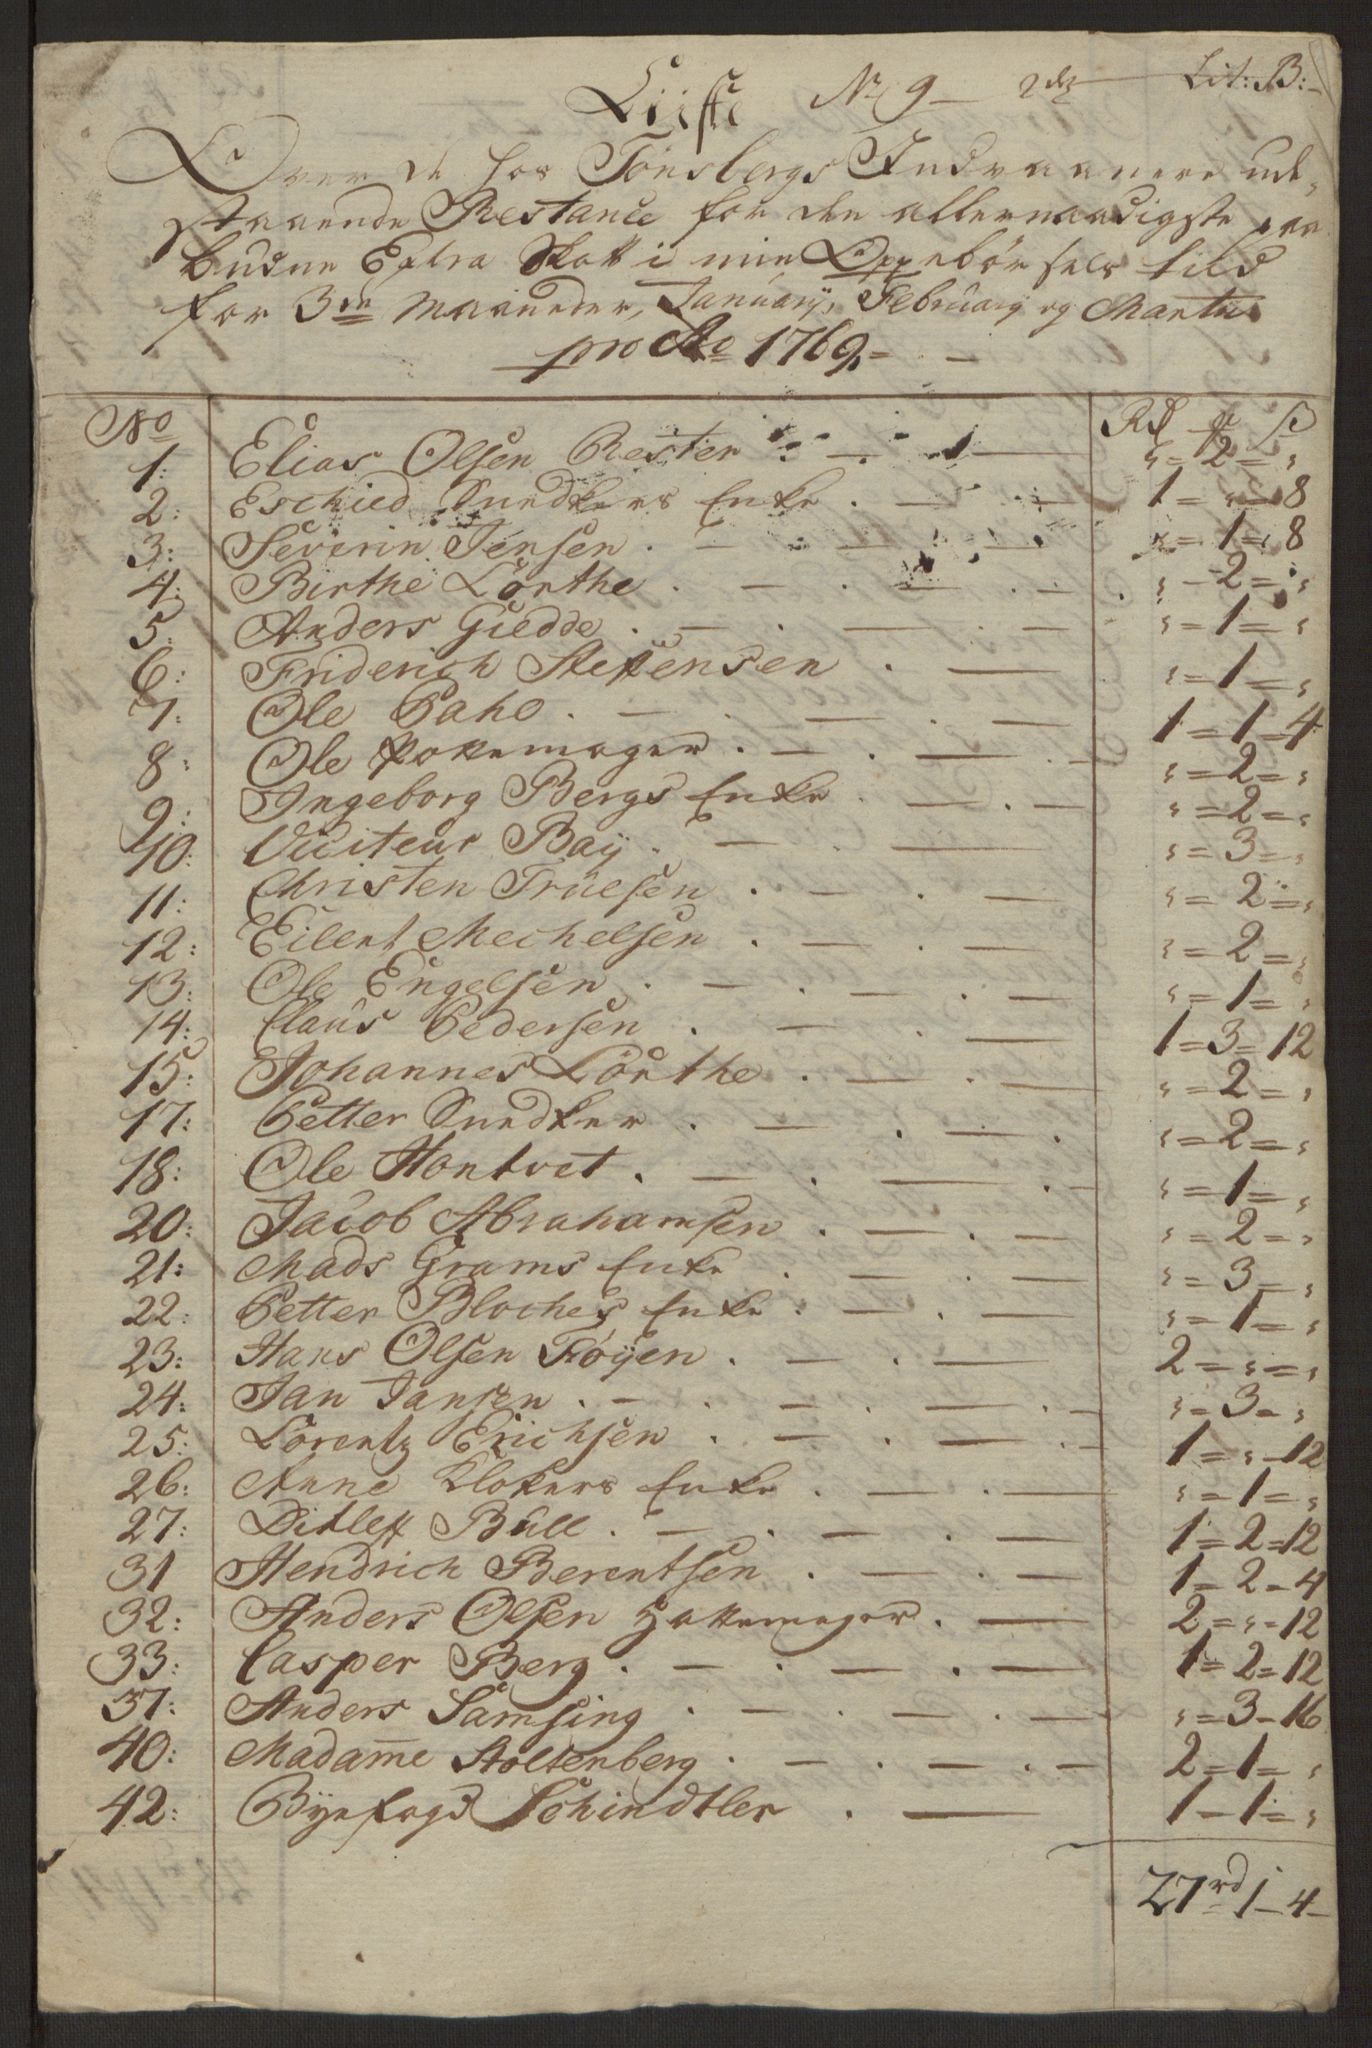 Liiste No 9 2de Lit: B:
Over de hos Tönsbergs Indvaanere ud-
staaende Restance for den allernaadigste paa
budne Extra Skatt i min Oppebörsels tiid
for 3de Maaneder, January, February og Martii
pro Ao 1769.
No Rd ß
1: Elias Olsen Rester " = 2 = "
2: Eschied Snedkers Enke 1 = " = 8
3: Severin Jensen " = 1 = 8
4: Birthe Lörthe " - 2 = "
5: Anders Giedde " = 1 = "
6: Friderich Steffensen " = 1 = "
7: Ole Paho 1 = 1 = 4
8: Ole Pottemager " = 2 = "
9: Ingeborg Bergs Enke " = 2 = "
10: Viciteur Baÿ " = 3 = "
11: Christen Truelsen " = 2 = "
12: Eilert Mechelsen " = 2 = "
13: Ole Engelsen " = 1 = "
14: Claus Pedersen 1 = 3 = 12
15: Johannes Lörthe " = 2 = "
17: Petter Snedker " = 2 = "
18: Ole Hontvet " = 1 = "
20: Jacob Abrahamsen " = 2 = "
21: Mads Grams Enke " = 3 = "
22: Petter Bloches Enke " = 1 = "
23: Hans Olsen Föÿen 2 = " = "
24: Jan Jansen " = 3 = "
25: Lorentz Erichsen 1 = " = 12
26: Anne Klokers Enke " = 1 = "
27: Ditleff Bull 1 = 2 = 12
31 Hendrich Berentsen 1 = 2 = 4
32: Anders Olsen Hattemager 2 = " = 12
33: Casper Berg 1 = 2 = 12
37: Anders Samsing " = 3 = 16
40: Madame Stoltenberg 2 = 1 = "
42: Byefogd Schindtler 1 - 1 = "
27rd 1 - 4 -